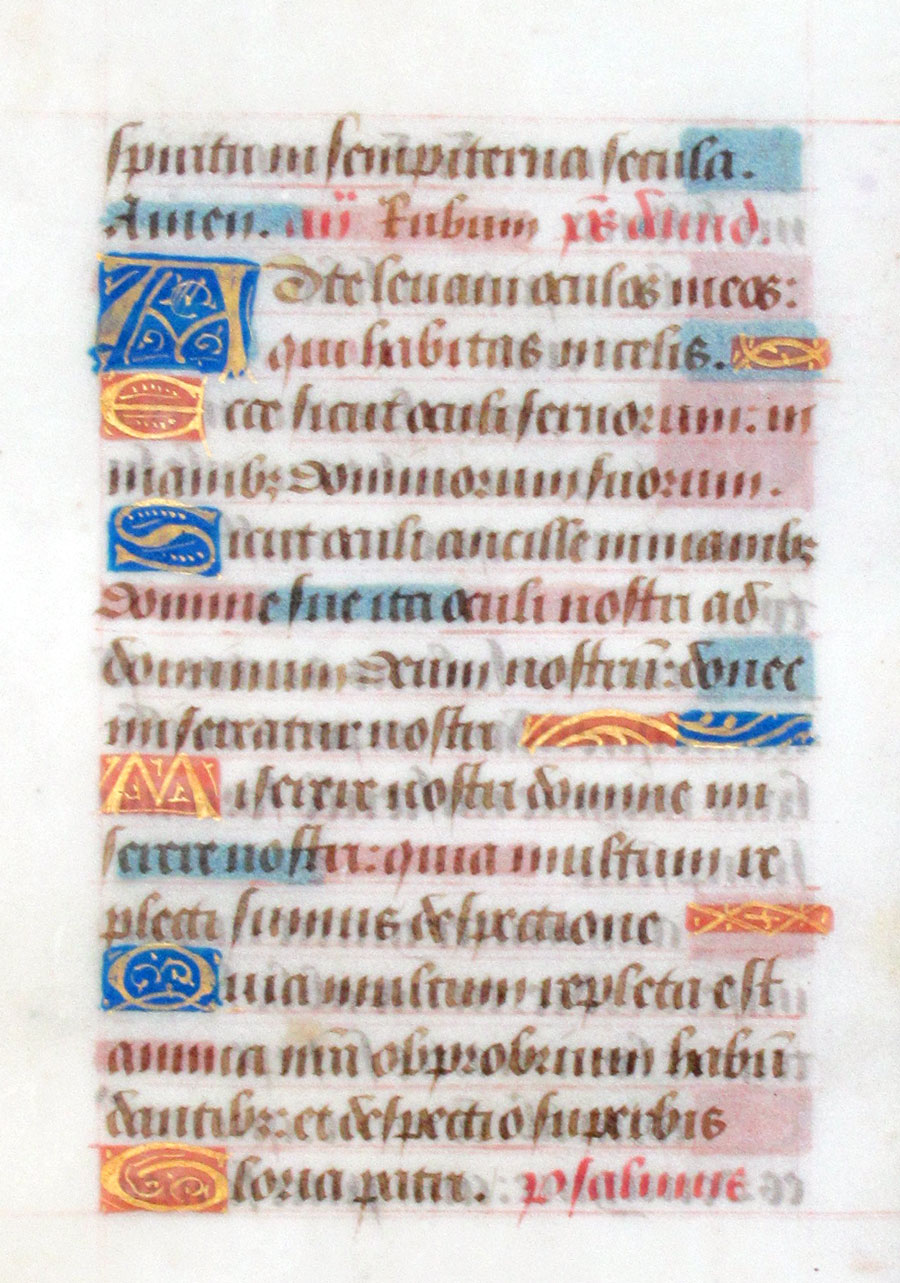 spiritum in sempiterna secula.
Amen. añ Rubum ps̄ david.
Ad te levavi oculos meos:
qui habitas in celis.
Ecce sicut oculi servorum: in
manibꝫ dominorum suorum.
Sicut oculi ancille in manibꝫ
domine sue ita oculi nostri ad
dominum deum nostrū: donec
misereatur nostri
Miserere nostri domine mi
serere nostri: quia multum re
pleti sumus despectione
Quia multum repleta est
anima nr̄a obprobrium habū
dantibꝫ: et despectio superbis
Gloria patri. psalmus